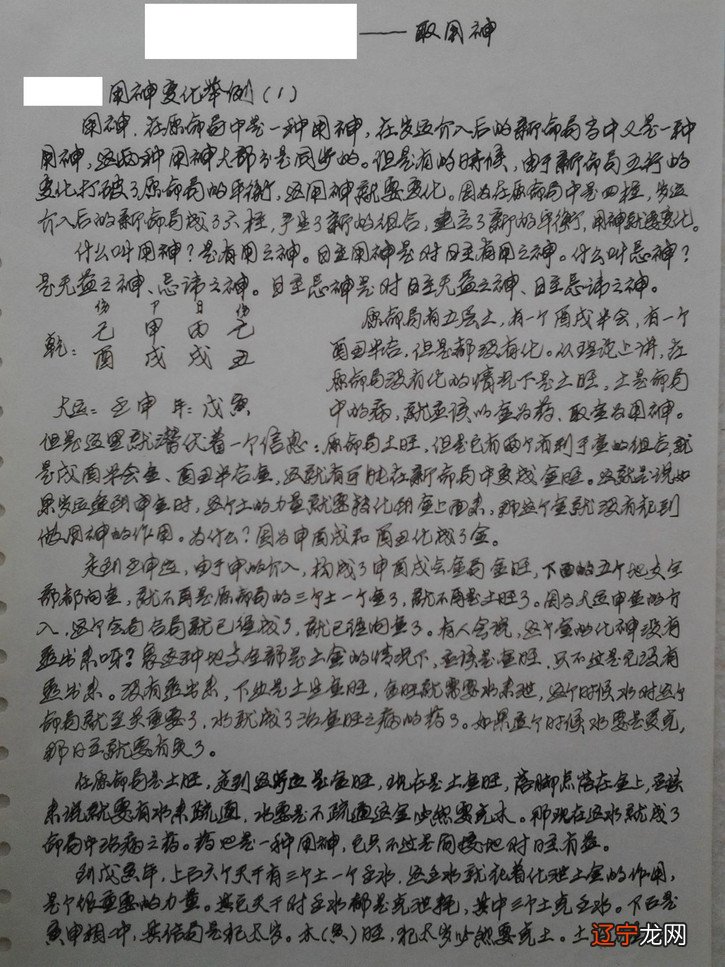 ——取用神
用神变化举例（1）
用神，在原命局中是一种用神，在岁运介入后的新命局当中又是一种
用神，这两种用神大部分是同步的。但是有的时候，由于新命局五行的
变化打破了原命局的平衡，这用神就要变化。因为在原命局中是四柱，岁运
介入后的新命局成了六柱，产生了新的组合，建立了新的平衡，用神就要变化。
什么叫用神？是有用之神。日主用神是对日主有用之神。什么叫忌神？
是无益之神、忌讳之神。日主忌神是对日主无益之神、日主忌讳之神。
伤 P 日 伤
己 甲 丙 己
乾： 酉 戌 戌 丑
大运：壬申 年：戊寅
原命局有五层土，有一个酉戌半会，有一个
酉丑半合，但是都没有化。从理论上讲，在
原命局没有化的情况下是土旺，土是命局
中的病，就应该以金为药、取金为用神。
但是这里就潜伏着一个信息：原命局土旺，但是已有两个有利于金的组合，就
是戌酉半会金、酉丑半合金，这就有可能在新命局中变成金旺。这就是说如
果岁运走到申金时，这个土的力量就要转化到金上面来，那这个金就没有起到
做用神的作用。为什么？因为申酉戌和酉丑化成了金。
走到壬申运，由于申的介入，构成了申酉戌会金局金旺，下面的五个地支全
部都向金，就不再是原命局的三个土一个金了，就不再是土旺了。因为大运申金的介
入，这个会局合局就已经成了，就已经向金了。有人会说，这个金的化神没有
透出来呀？象这种地支全部是土金的情况下，应该是金旺，只不过是它没有
透出来。没有透出来，下边是土生金旺，金旺就需要水来泄，这个时候水对这个
命局就至关重要了，水就成了治金旺之病的药了。如果这个时候水要是受克，
那日主就要有灾了。
在原命局是土旺，走到这步运是金旺，现在是土金旺，落脚点落在金上，应该
来说就要有水来疏通，水要是不疏通这金必然要克木。那现在这水就成了
命局中治病之药。药也是一种用神，它只不过是间接地对日主有益。
到戊寅年，上面六个天干有三个土一个壬水，这壬水就起着化泄土金的作用，
是个很重要的力量。其它天干对壬水都是克泄耗，其中三个土克壬水。下面是
寅申相冲，其结局是犯太岁。木（寅）旺，犯太岁必然要克土。土
辽宁龙网